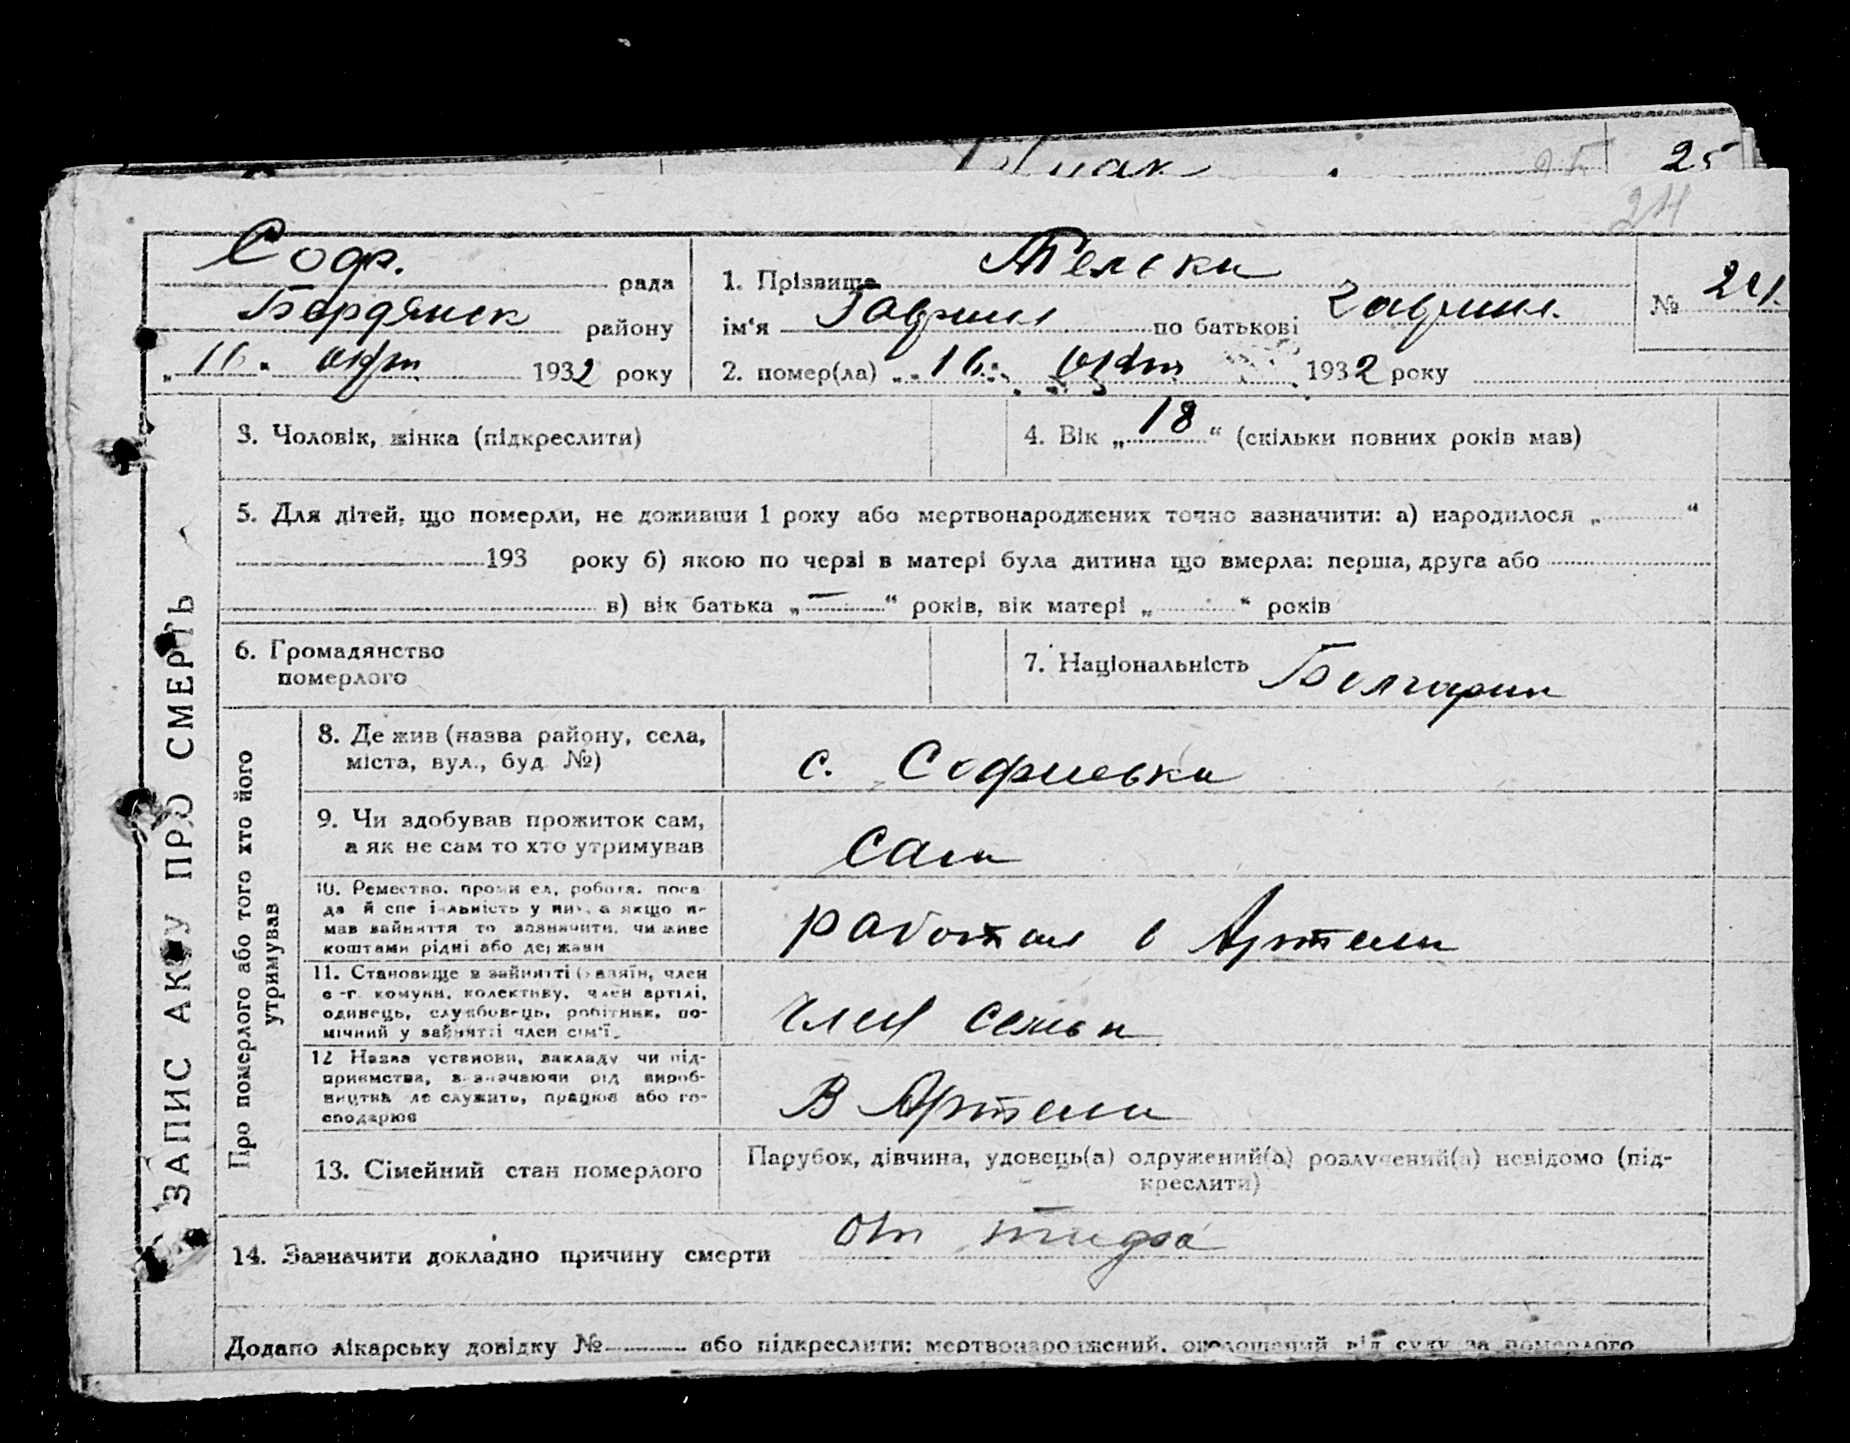 25
24
Соф. рада
Бердянск району
„ 16 “ окт 1932 року
1. Прізвище Тельки
ім'я Гаврил по батькові Гаврил.
2. помер(ла) „ 16 “ окт 1932 року
№ 24.
3. Чоловік, жінка (підкреслити)
4. Вік „ 18 “ (скільки повних років мав)
5. Для дітей, що померли, не доживши 1 року або мертвонароджених точно зазначити: а) народилося „ “
193 року б) якою по черзі в матері була дитина що вмерла: перша, друга або
в) вік батька „ — “ років, вік матері „ “ років
6. Громадянство
померлого
7. Національність Болгарин
ЗАПИС АКТУ ПРО СМЕРТЬ
Про померлого або того хто його
утримував
8. Де жив (назва району, села,
міста, вул., буд. №)
с. Софиевка
9. Чи здобував прожиток сам,
а як не сам то хто утримував
сам
10. Ремество, промисел, робота, поса-
да й спеціальність у них, а якщо не
мав зайняття то зазначити, чи живе
коштами рідні або держави
работал в Артели
11. Становище в зайнятті (хазяїн, член
с-г. комуни, колективу, член артілі,
одинець, службовець, робітник, по-
мічний у зайнятті член сім'ї.
член семьи
12 Назва установи, закладу чи під-
приємства, визначаючи рід вироб-
ництва де служить, працює або го-
сподарює
В Артели
13. Сімейний стан померлого
Парубок, дівчина, удовець(а) одружений(а) розлучений(а) невідомо (під-
креслити)
14. Зазначити докладно причину смерти
от тифа
Додано лікарську довідку № або підкреслити: мертвонароджений, оголошений від суду за померлого